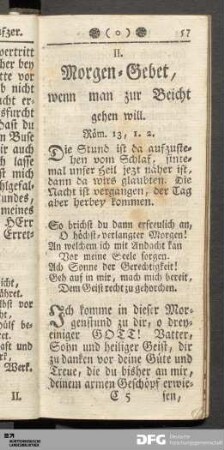 fzer.
ortritt
her bey
tte vor
b nicht
cht er-
sfurcht
ast du
n Buse
ir auch
h lasse
st mich
hlgefal-
undes,
meines
HErr
Erret-
icht,
ähret.
bst vor
ht,
hülf be-
ht.
aft und
? Werk.
II.
( o ) 57
II.
Morgen-Gebet,
wenn man zur Beicht
gehen will.
Röm. 13, 1. 2.
Die Stund ist da aufzuste-
hen vom Schlaf, sinte-
mal unser Heil jezt näher ist,
dann da wirs glaubten. Die
Nacht ist vergangen, der Tag
aber herbey kommen.
So brichst du dann erfreulich an,
O höchst-verlangter Morgen!
An welchem ich mit Andacht kan
Vor meine Seele sorgen.
Ach Sonne der Gerechtigkeit!
Geh auf in mir, mach mich bereit,
Dem Geist recht zu gehorchen.
Ich komme in dieser Mor-
genstund zu dir, o drey-
einiger GOTT! Vatter,
Sohn und heiliger Geist, dir
zu danken vor deine Güte und
Treue, die du bisher an mir,
deinem armen Geschöpf erwie-
C 5 sen,
DFG Deutsche
Forschungsgemeinschaft